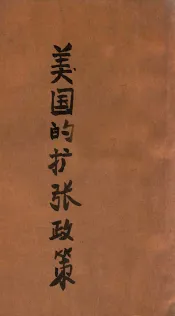 美国的扩张政策